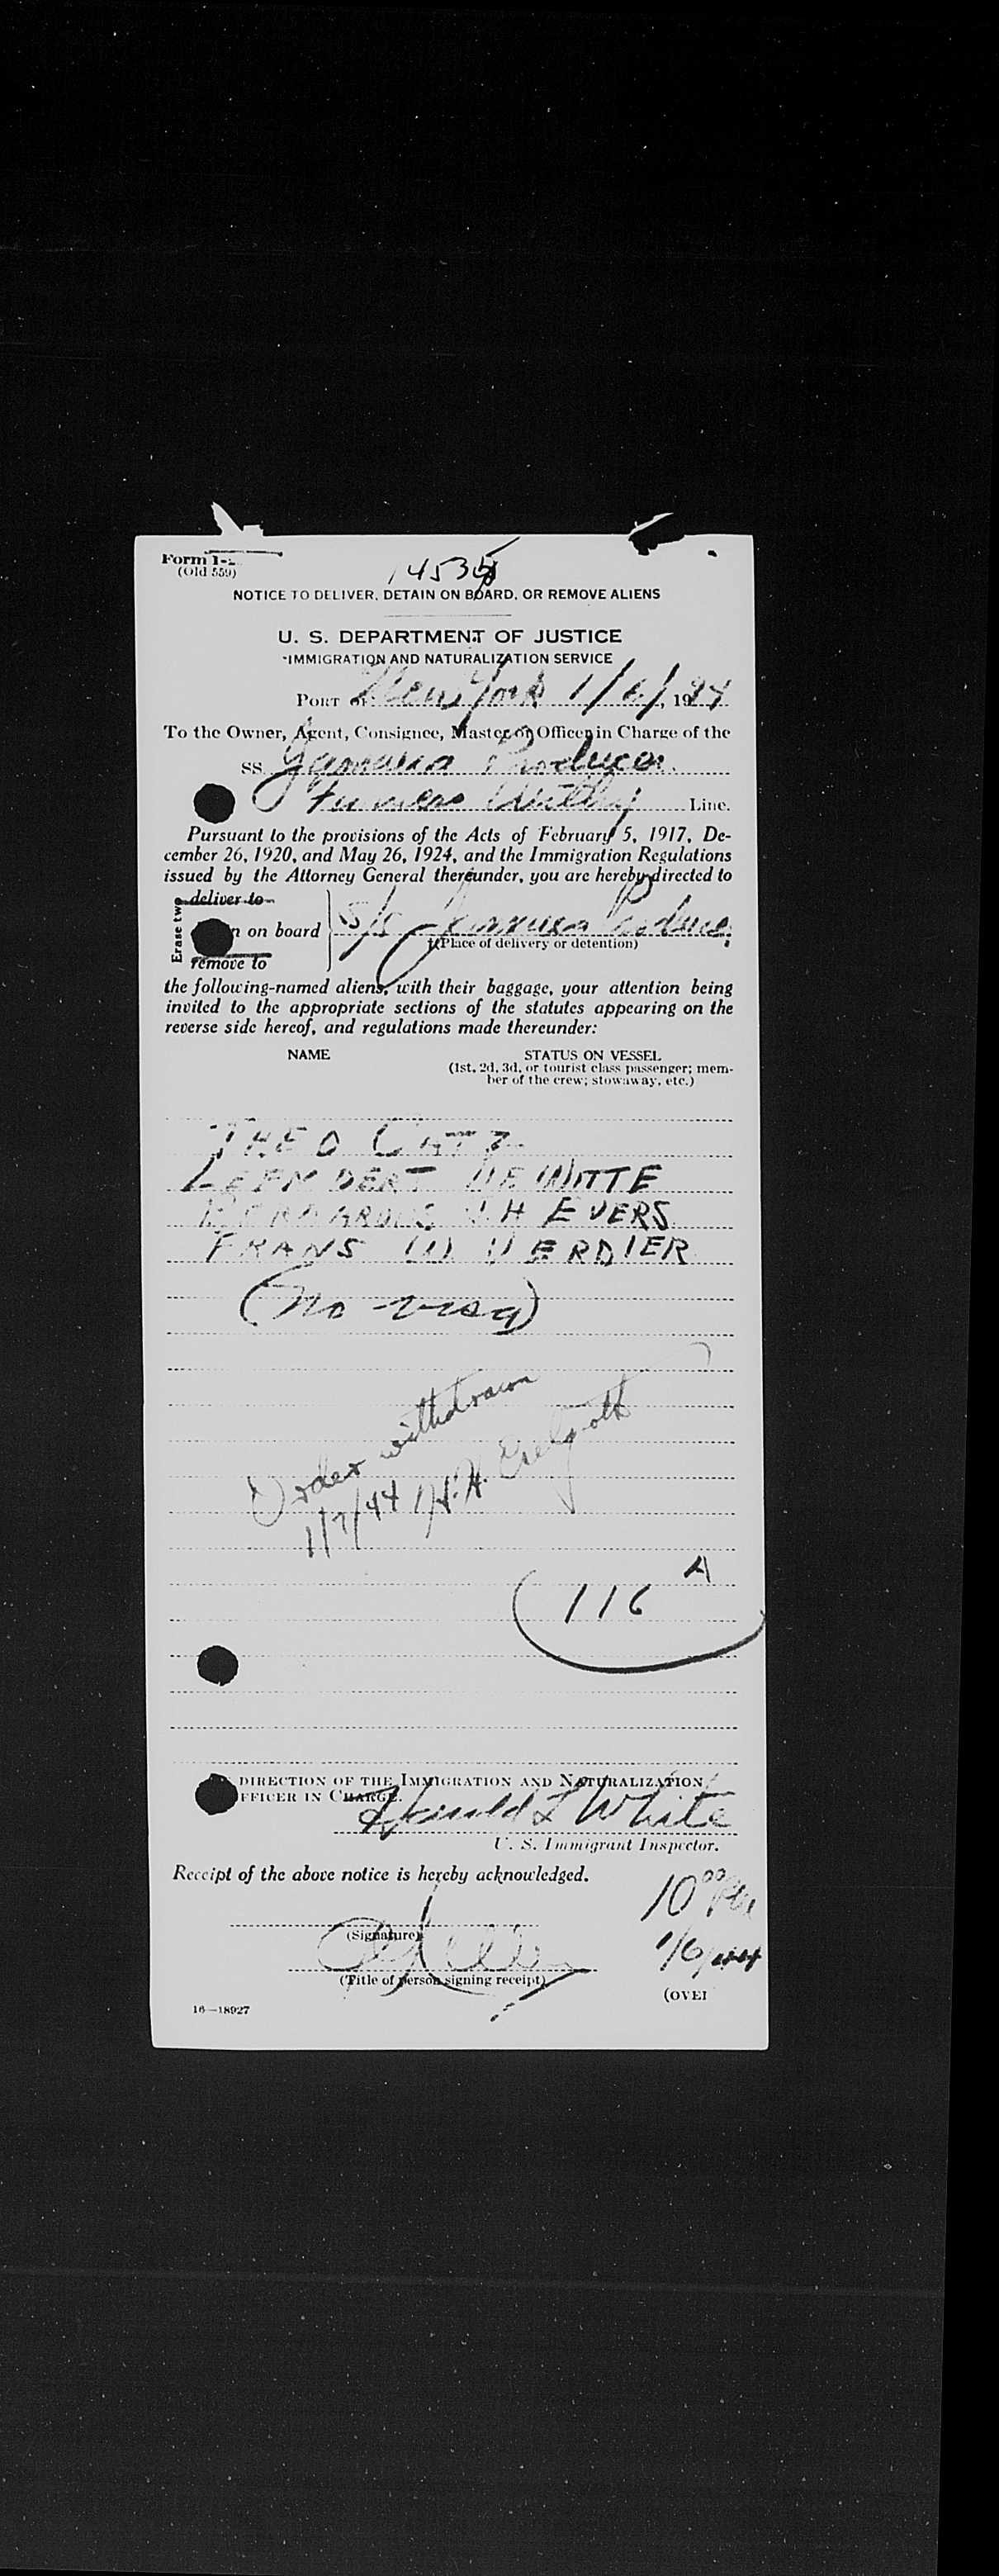 Form I-
(Old 559)
14535
NOTICE TO DELIVER, DETAIN ON BOARD, OR REMOVE ALIENS
U. S. DEPARTMENT OF JUSTICE
IMMIGRATION AND NATURALIZATION SERVICE
PORT OF New York 1/6/, 1944
To the Owner, Agent, Consignee, Master or Officer in Charge of the
SS. Jamaica Producer
Furness Withy Line.
Pursuant to the provisions of the Acts of February 5, 1917, De-
cember 26, 1920, and May 26, 1924, and the Immigration Regulations
issued by the Attorney General thereunder, you are hereby directed to
Erase two
deliver to
n on board
remove to
S/S Jamaica Producer
(Place of delivery or detention)
the following-named aliens, with their baggage, your attention being
invited to the appropriate sections of the statutes appearing on the
reverse side hereof, and regulations made thereunder:
NAME STATUS ON VESSEL
(1st, 2d, 3d, or tourist class passenger; mem-
ber of the crew; stowaway, etc.)
THEO CATZ
LEENDERT DE WITTE
BERNARDUS J.H EVERS
FRANS W VERDIER
(No visa)
Order withdrawn
1/7/44 H.
116 A
DIRECTION OF THE IMMIGRATION AND NATURALIZATION
FFICER IN CHARGE.
Harold L White
U. S. Immigrant Inspector.
Receipt of the above notice is hereby acknowledged.
10 00 PM
(Signature)
1/6/44
(Title of person signing receipt)
(OVER
16—18927